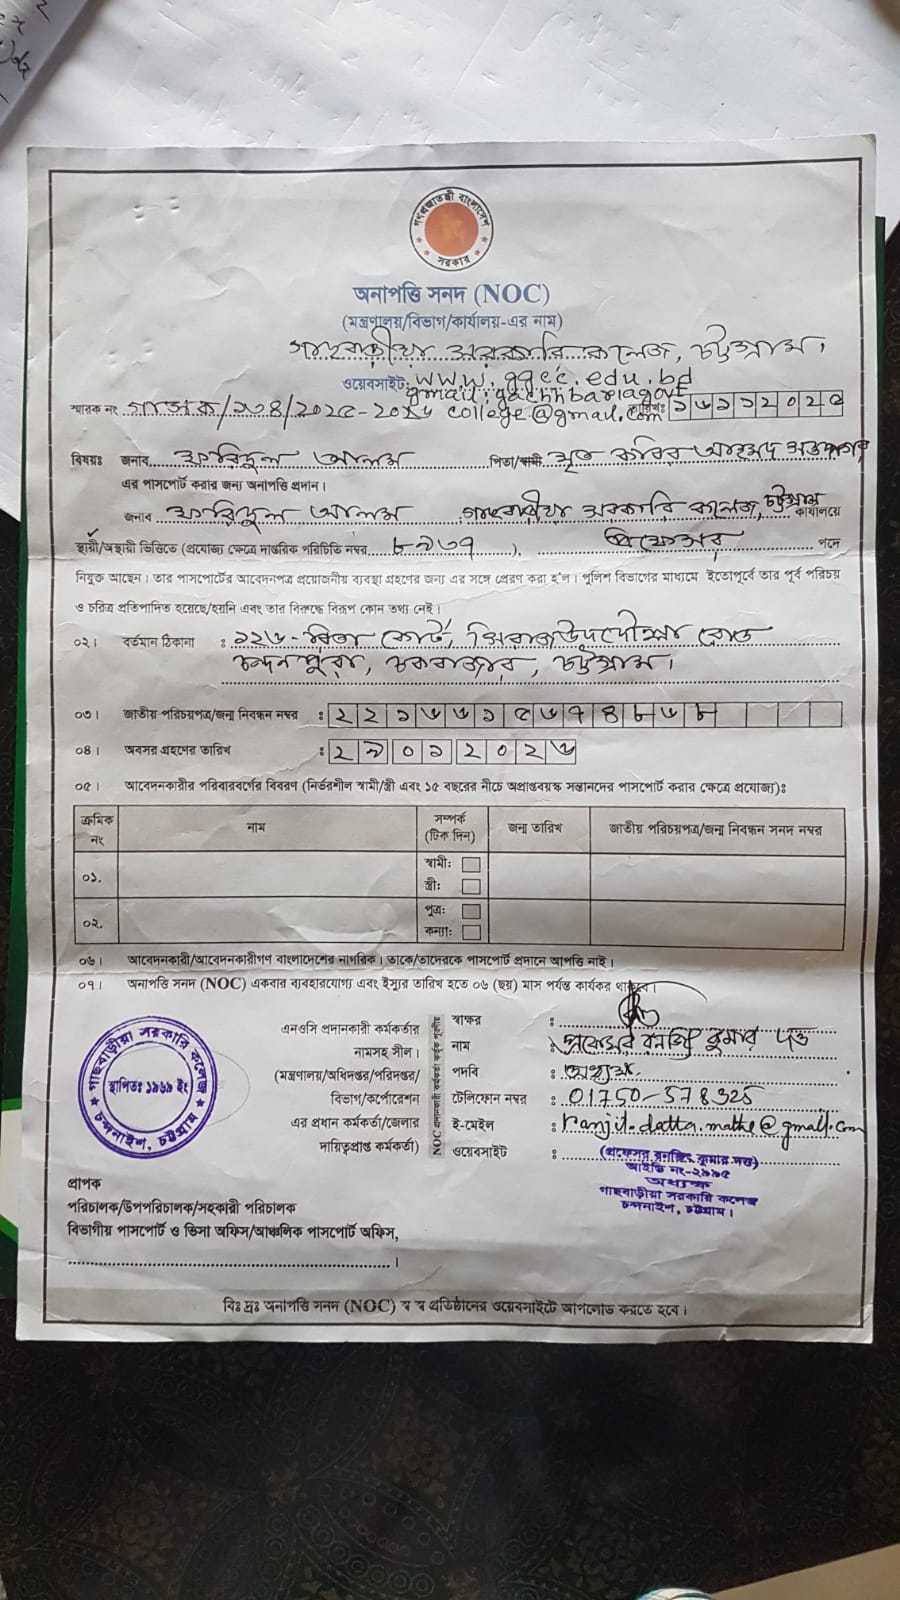 গণপ্রজাতন্ত্রী বাংলাদেশ
সরকার
অনাপত্তি সনদ (NOC)
(মন্ত্রণালয়/বিভাগ/কার্যালয়-এর নাম)
গাছবাড়ীয়া সরকারি কলেজ, চট্টগ্রাম।
ওয়েবসাইট: www.ggcc.edu.bd
gmail: gachhbariagovt
স্মারক নং গাসক/১৩৪/২০২৫-২০২৬ college@gmail.com তারিখ: ১৬১১২০২৫
বিষয়ঃ জনাব ফরিদুল আলম পিতা/স্বামী মৃত কবির আহমদ সওদাগর
এর পাসপোর্ট করার জন্য অনাপত্তি প্রদান।
জনাব ফরিদুল আলম গাছবাড়ীয়া সরকারি কলেজ, চট্টগ্রাম কার্যালয়ে
স্থায়ী/অস্থায়ী ভিত্তিতে (প্রযোজ্য ক্ষেত্রে দাপ্তরিক পরিচিতি নম্বর ৮৯৩৭ ), প্রফেসর পদে
নিযুক্ত আছেন। তার পাসপোর্টের আবেদনপত্র প্রয়োজনীয় ব্যবস্থা গ্রহণের জন্য এর সঙ্গে প্রেরণ করা হ'ল। পুলিশ বিভাগের মাধ্যমে ইতোপূর্বে তার পূর্ব পরিচয়
ও চরিত্র প্রতিপাদিত হয়েছে/হয়নি এবং তার বিরুদ্ধে বিরূপ কোন তথ্য নেই।
০২। বর্তমান ঠিকানা : ১২৬-রিতা কোর্ট, সিরাজউদদৌল্লা রোড
চন্দনপুরা, চকবাজার, চট্টগ্রাম।
০৩। জাতীয় পরিচয়পত্র/জন্ম নিবন্ধন নম্বর : ২২১৬৬১৫৬৭৪৮৬৮
০৪। অবসর গ্রহণের তারিখ : ২৯০১২০২৬
০৫। আবেদনকারীর পরিবারবর্গের বিবরণ (নির্ভরশীল স্বামী/স্ত্রী এবং ১৫ বছরের নীচে অপ্রাপ্তবয়স্ক সন্তানদের পাসপোর্ট করার ক্ষেত্রে প্রযোজ্য)ঃ
ক্রমিক নং নাম সম্পর্ক (টিক দিন) জন্ম তারিখ জাতীয় পরিচয়পত্র/জন্ম নিবন্ধন সনদ নম্বর
০১. স্বামী:
স্ত্রী:
০২. পুত্র:
কন্যা:
০৬। আবেদনকারী/আবেদনকারীগণ বাংলাদেশের নাগরিক। তাকে/তাদেরকে পাসপোর্ট প্রদানে আপত্তি নাই।
০৭। অনাপত্তি সনদ (NOC) একবার ব্যবহারযোগ্য এবং ইস্যুর তারিখ হতে ০৬ (ছয়) মাস পর্যন্ত কার্যকর থাকবে।
গাছবাড়ীয়া সরকারি কলেজ
স্থাপিতঃ ১৯৬৯ ইং
চন্দনাইশ, চট্টগ্রাম
এনওসি প্রদানকারী কর্মকর্তার
নামসহ সীল।
(মন্ত্রণালয়/অধিদপ্তর/পরিদপ্তর/
বিভাগ/কর্পোরেশন
এর প্রধান কর্মকর্তা/জেলার
দায়িত্বপ্রাপ্ত কর্মকর্তা)
NOC প্রদানকারী কর্মকর্তা কর্তৃক পূরণীয়
স্বাক্ষর :
নাম : প্রফেসর রনজিৎ কুমার দত্ত
পদবি : অধ্যক্ষ
টেলিফোন নম্বর : 01750-578325
ই-মেইল : ranjit.datta.mathe@gmail.com
ওয়েবসাইট :
(প্রফেসর রনজিৎ কুমার দত্ত)
আইডি নং-২৯৯৫
অধ্যক্ষ
গাছবাড়ীয়া সরকারি কলেজ
চন্দনাইশ, চট্টগ্রাম।
প্রাপক
পরিচালক/উপপরিচালক/সহকারী পরিচালক
বিভাগীয় পাসপোর্ট ও ভিসা অফিস/আঞ্চলিক পাসপোর্ট অফিস,
বিঃ দ্রঃ অনাপত্তি সনদ (NOC) স্ব স্ব প্রতিষ্ঠানের ওয়েবসাইটে আপলোড করতে হবে।